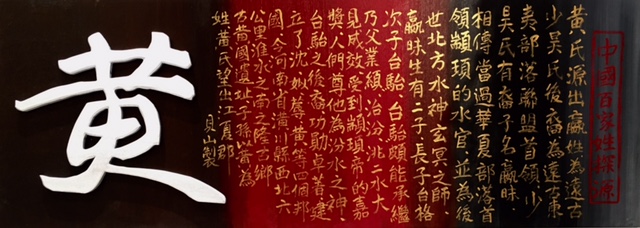 中國百家姓探源
黃氏源出嬴姓為遠古
少吳氏後裔為遠古東
夷部落聯盟首領,少
吳氏有裔子名嬴昧.
相傳當過華夏部落首
領顓頊的水官並為後
世北方水神玄冥之師.
嬴昧生有二子長子台格
次子台駘、台駘頗能承繼
乃父業績治汾、洮二水大
見成效受到顓頊帝的嘉
獎人們尊他為汾水之神.
台駘之後裔功勛卓著建
立了沈、姒、蓐、黃等四個邦
國.今河南省潢川縣西北六
公里淮水之南之隆古鄉
方黃國遺址子孫以黃為
姓黃氏望出江夏郡
貝山製
黃